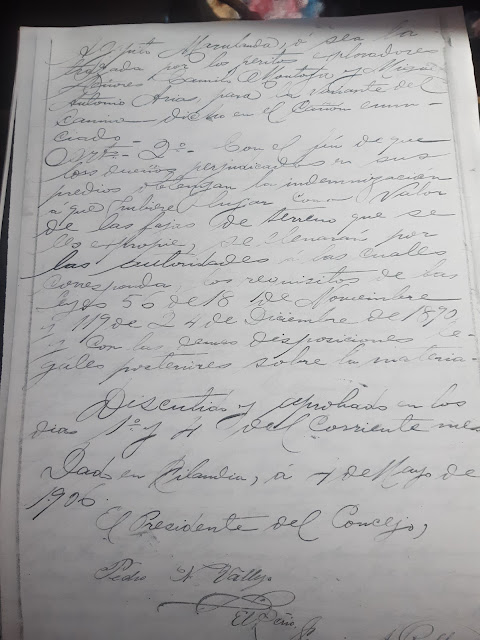 ó sea la
trazada por los peritos exploradores
Señores Camilo Montoya y
Antonio Arias, para la variante del
camino dicho en el Cañón enun-
ciado.
Art. 2º.- Con el fin de que
los dueños perjudicados en sus
predios obtengan la indemnización
á que hubiere lugar como valor
de las fajas de terreno que se
les expropie, se llenarán por
las autoridades á las cuales
corresponda, los requisitos de las
leyes 56 de 18 de Noviembre
y 119 de 24 de Diciembre de 1890
y con las demás disposiciones le-
gales posteriores sobre la materia-
Discutido y aprobado en los
días 1º y 4 del corriente mes
Dado en Filandia, á 4 de Mayo de
1906.
El Presidente del Concejo,
Pedro A. Vallejo
El Srio,